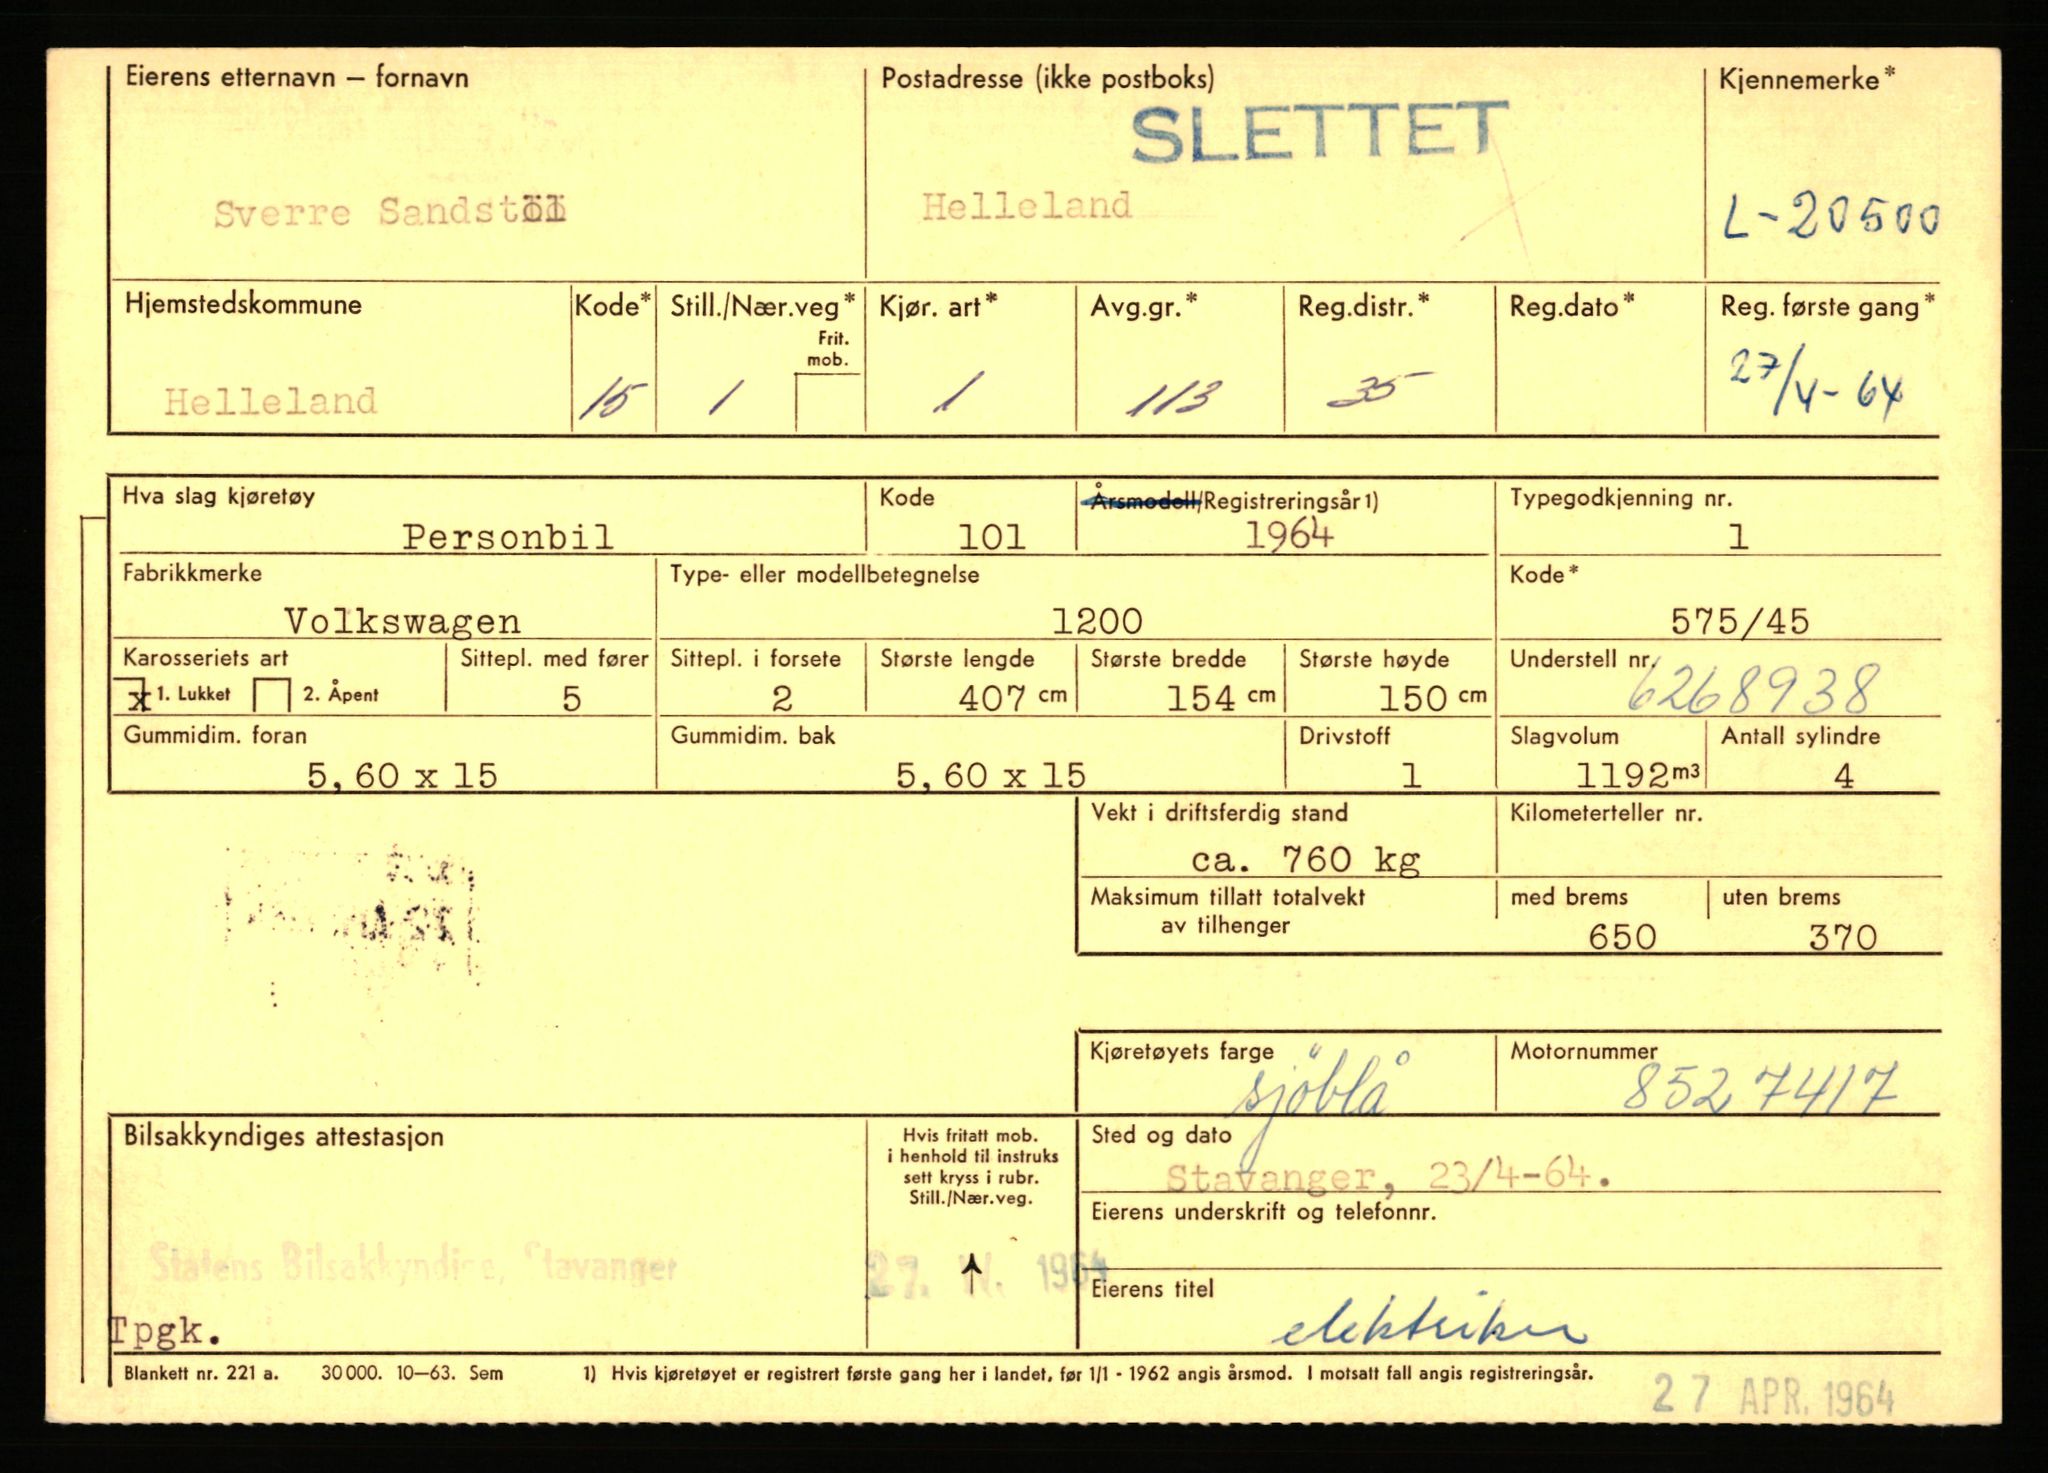 Eierens etternavn – fornavn
Postadresse (ikke postboks)
Kjennemerke*
SLETTET
Sverre Sandstöl
Helleland
L-20500
Hjemstedskommune
Kode*
Still./Nær.veg*
Frit.
mob.
Kjør. art*
Avg.gr.*
Reg.distr.*
Reg.dato*
Reg. første gang*
Helleland
15
1
1
113
35
27/4-64
Hva slag kjøretøy
Kode
Årsmodell/Registreringsår 1)
Typegodkjenning nr.
Personbil
101
1964
1
Fabrikkmerke
Type- eller modellbetegnelse
Kode*
Volkswagen
1200
575/45
Karosseriets art
Sittepl. med fører
Sittepl. i forsete
Største lengde
Største bredde
Største høyde
Understell nr.
x 1. Lukket
2. Åpent
5
2
407 cm
154 cm
150 cm
6268938
Gummidim. foran
Gummidim. bak
Drivstoff
Slagvolum
Antall sylindre
5,60 x 15
5,60 x 15
1
1192 m3
4
Vekt i driftsferdig stand
Kilometerteller nr.
ca. 760 kg
Maksimum tillatt totalvekt
av tilhenger
med brems
uten brems
650
370
Kjøretøyets farge
Motornummer
sjöblå
8527417
Bilsakkyndiges attestasjon
Hvis fritatt mob.
i henhold til instruks
sett kryss i rubr.
Still./Nær.veg.
Sted og dato
Stavanger, 23/4-64.
Eierens underskrift og telefonnr.
Statens Bilsakkyndige, Stavanger
27. IV. 1964
Eierens titel
elektriker
Tpgk.
Blankett nr. 221 a. 30 000. 10–63. Sem
1) Hvis kjøretøyet er registrert første gang her i landet, før 1/1 - 1962 angis årsmod. I motsatt fall angis registreringsår.
27 APR. 1964